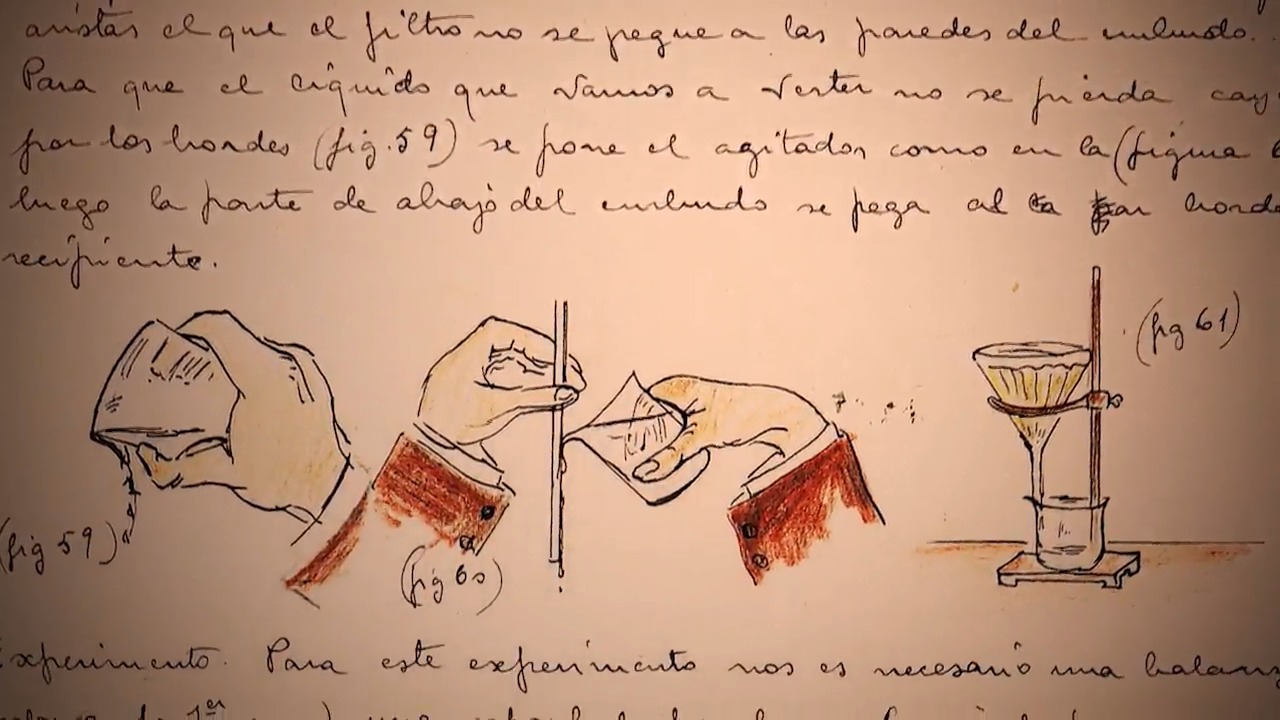 aristas el que el filtro no se pegue a las paredes del embudo.
Para que el líquido que vamos a verter no se pierda cay
por los bordes (fig. 59) se pone el agitador como en la (figura 6
luego la parte de abajo del embudo se pega al borde
recipiente.
(fig 61)
(fig 59)
(fig 60)
Experimento. Para este experimento nos es necesario una balanz